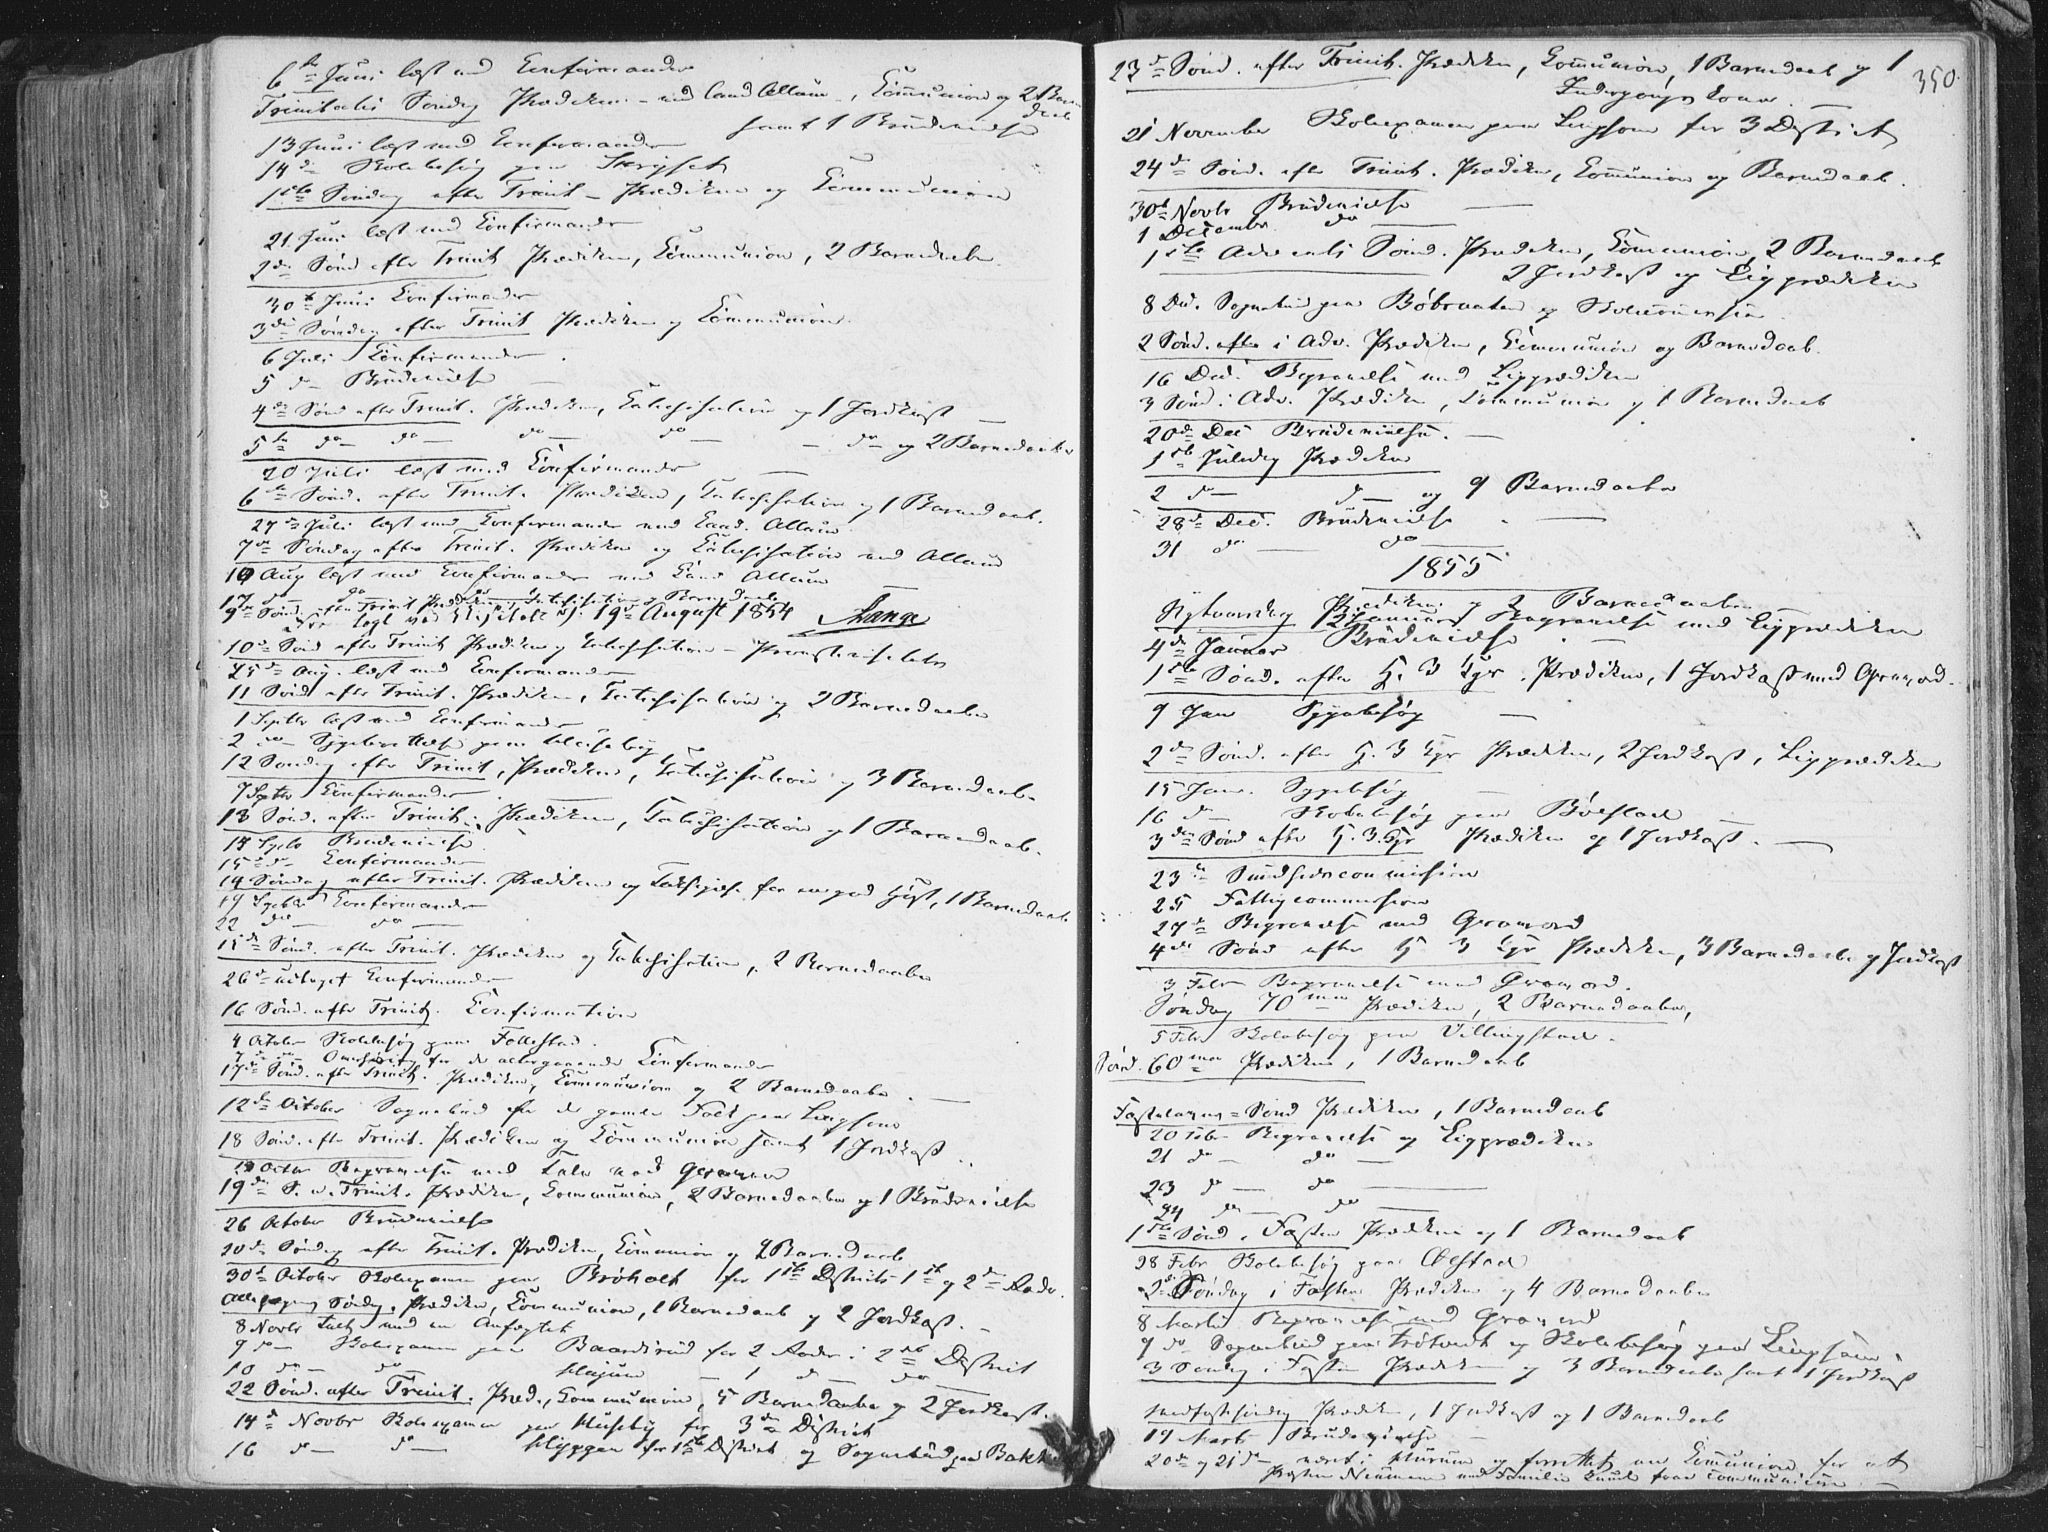 6te Juni læst med Confirmander
Trinitatis Søndag Prædiken - ved Cand Allum -, Communion og 2 Barnedaab
samt 1 Brudevielse
13 Juni læst med Confirmander
14 d Skolebesøg paa
1ste Søndag efter Trinit - Prædiken og Communion
21 Juni læst med Confirmander
2den Sønd efter Trinit Prædiken, Communion, 2 Barnedaabe
30te Juni Confirmander
3die Søndag efter Trinit Prædiken og Communion.
6 Juli Confirmander.
5 do Brudevielse
4de Sønd efter Trinit. Prædiken, Catechisation og 1 Jordkast
5te do do do do do og 2 Barnedaabe
20 Juli læst med Confirmander
6te Sønd. efter Trinit. Prædiken, Catechisation og 1 Barnedaab.
27de Juli læst med Confirmander ved Cand. Allum
7de Søndag efter Trinit. Prædiken og Catechisation ved Allum
10 Aug læst med Confirmander ved Cand Allum
17 do do
9de Sønd. efter Trinit Prædiken, Catechisation og Barnedaab
19de August 1854 Lange
10de Sønd efter Trinit Prædiken og Catechisation - Provstevisitats
25de Aug. læst med Confirmander
11 Sønd efter Trinit. Prædiken, Catechisation og 2 Barnedaabe
1 Septbr læst med Confirmander
2 do Sygeberettelse paa
12 Søndag efter Trinit, Prædiken, Catechisation og 3 Barnedaabe
7 Septbr Confirmander
13 Sønd. efter Trinit. Prædiken, Catechisation og 1 Barnedaab.
14 Septbr Brudevielse
15de do Confirmander
14 Søndag efter Trinit. Prædiken og Taksigelse for en god Høst, 1 Barnedaab
19 Septbr Confirmander
22 do do
15de Sønd. efter Trinit. Prædiken og Catechisation, 2 Barnedaabe
26de udtaget Confirmander
16 Sønd. efter Trinit. Confirmation
4 October Skolebesøg paa Follestad.
7de do Overhøring for de altergaaende Confirmander
17de Sønd. efter Trinit. Prædiken, Communion og 2 Barnedaabe.
12de October Sognebud for de gamle Folk paa Lingsom
18 Sønd. efter Trinit. Prædiken og Communion samt 1 Jordkast.
19 Octbr Begravelse med Tale ved Graven
19de S. e. Trinit. Prædiken, Communion, 2 Barnedaabe og 1 Brudevielse
26 October Brudevielse
20de Søndag efter Trinit. Prædiken, Communion og 2 Barnedaab
30te October Skolexamen paa Brøholt for 1ste Districts 1ste og 2den Rode.
Allehelgens Søndag, Prædiken, Communion, 1 Barnedaab og 2 Jordkast.
8 Novbr Talt med en Anfægtet
9 do Skolexamen paa Baardsrud for 2 Roder i 2det District
10 do do 1 do do
22 Sønd. efter Trinit. Præd., Communion, 5 Barnedaabe og 2 Jordkast.
14de Novbr Skolexamen paa Huseby for 3die District
16 do do Klyppen for 1ste District og Sognebud paa Bakke
350
23de Sønd. efter Trinit. Prædiken, Communion, 1 Barnedaab og 1
Indgangskone.
21 November Skolexamen paa Lingsom for 3 District
24de Sønd. efter Trinit. Prædiken, Communion og Barnedaab.
30te Novbr Brudevielse
1 December do
1ste Advents Sønd. Prædiken, Communion, 2 Barnedaab
2 Jordkast og Ligprædiken
8 Dec. Sognebud paa og Skolecommission
2 Sønd. efter i Adv. Prædiken, Communion og Barnedaab.
16 Dec. Begravelse med Ligprædiken
3 Sønd. i Adv. Prædiken, Communion og 1 Barnedaab
20de Dec Brudevielse.
1ste Juledag Prædiken
2 do do og 9 Barnedaabe
28de Dec. Brudevielse
31 do do
1855
Nytaarsdag Prædiken og 2 Barnedaabe
2 Januar Begravelse med Ligprædiken
4de Januar Brudevielse
1ste Sønd. efter H. 3 Kgr. Prædiken, 1 Jordkast med Gravord.
9 Jan Sygebesøg
2den Sønd. efter H. 3 Kgr Prædiken, 2 Jordkast, Ligprædiken
15 Jan. Sygebesøg
16 do Skolebesøg paa Bølstad
3die Sønd efter H. 3. Kgr Prædiken og 1 Jordkast.
23de Sundhedscommission
25 Fattigcommission
27de Begravelse med Gravord
4de Sønd efter H 3 Kgr Prædiken, 3 Barnedaabe og Jordkast
3 Febr Begravelse med Gravord.
Søndag 70mæ Prædiken, 2 Barnedaabe,
5 Febr Skolebesøg paa Villingstad.
Sønd. 60mæ Prædiken, 1 Barnedaab
Fastelavns-Sønd Prædiken, 1 Barnedaab
20 Febr Begravelse og Ligprædiken
21 do do
23 do do
24 do do
1ste Sønd. i Fasten Prædiken og 1 Barnedaab
28 Febr Skolebesøg paa Ølstad
2den Søndag i Fasten Prædiken og 4 Barnedaabe
8 Marts Begravelse med Gravord
9 do Sognebud paa og Skolebesøg paa Lingsom.
3 Søndag i Fasten Prædiken og 3 Barnedaabe samt 1 Jordkast
Midfastesøndag Prædiken, 1 Jordkast og 1 Barnedaab
19 Marts Brudevielse
20de og 21de været i Hurum og forrettet en Communion for at
Præsten Neumann med Familie kunde faae communicere